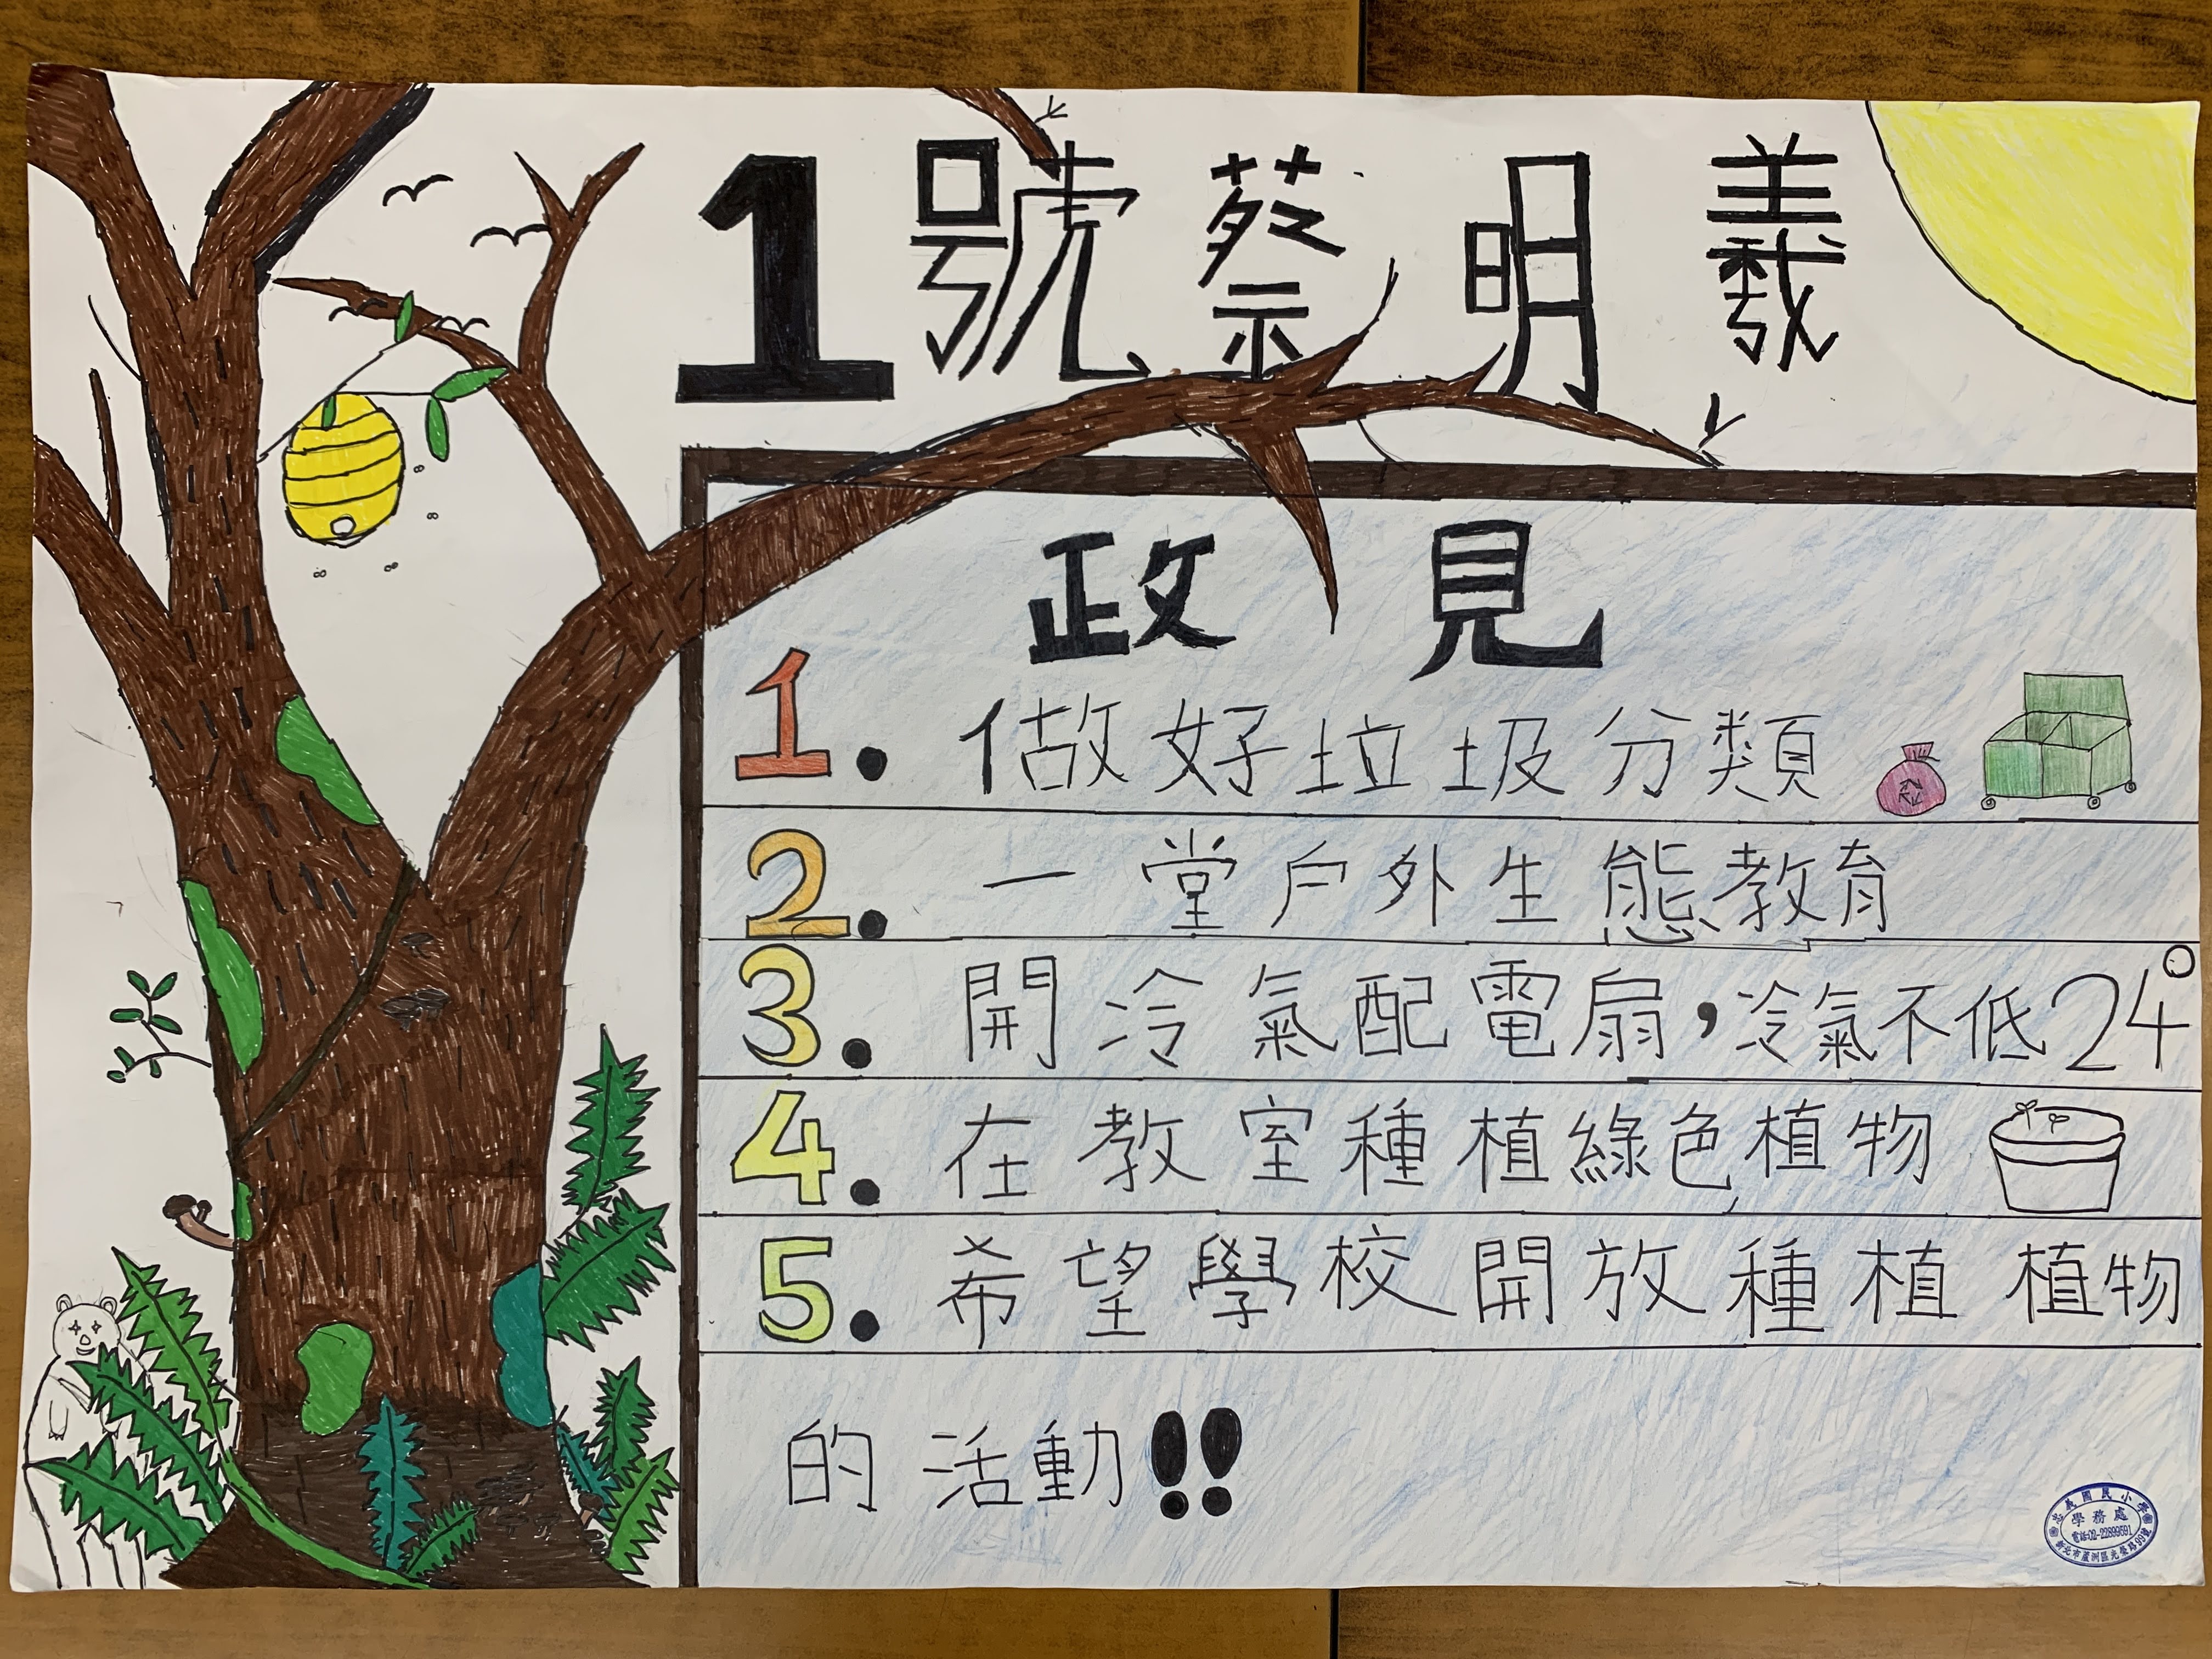 1號蔡明羲
政見
1. 做好垃圾分類
2. 一堂戶外生態教育
3. 開冷氣配電扇，冷氣不低24°
4. 在教室種植綠色植物
5. 希望學校開放種植植物
的活動!!
忠義國民小學
學務處
電話:02-22899591
新北市蘆洲區光榮路99號